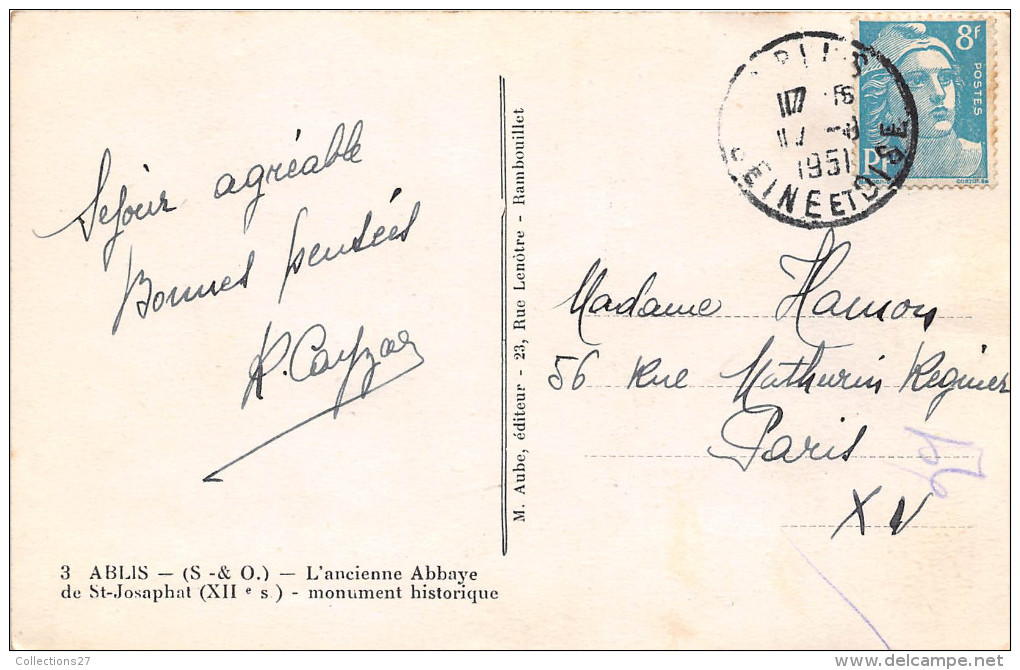 Séjour agréable
Bonnes pensées
3 ABLIS — (S -& O.) — L'ancienne Abbaye
de St-Josaphat (XII e s.) - monument historique
M. Aube, éditeur - 23, Rue Lenôtre - Rambouillet
8F
POSTES
RF
ABLIS
1951
SEINE ET OISE
Madame Hamon
56 Rue Mathurin Régnier
Paris
XV
Collections27
http://www.delcampe.net